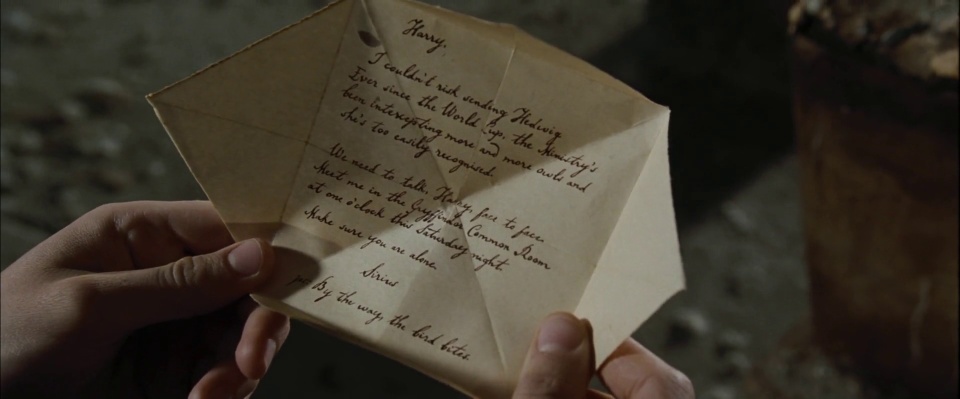 Harry,
I couldn't risk sending Hedwig
Ever since the World Cup, the Ministry's
been Intercepting more and more owls and
she's too easily recognised.
We need to talk, Harry, face to face.
Meet me in the Gryffindor Common Room
at one o'clock this Saturday night.
Make sure you are alone.
Sirius
ps By the way, the bird bites.